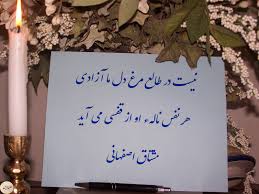 نیست در طالع مرغ دل ما آزادی
هر نفس نالهء او از قفسی می آید
مشتاق اصفهانی